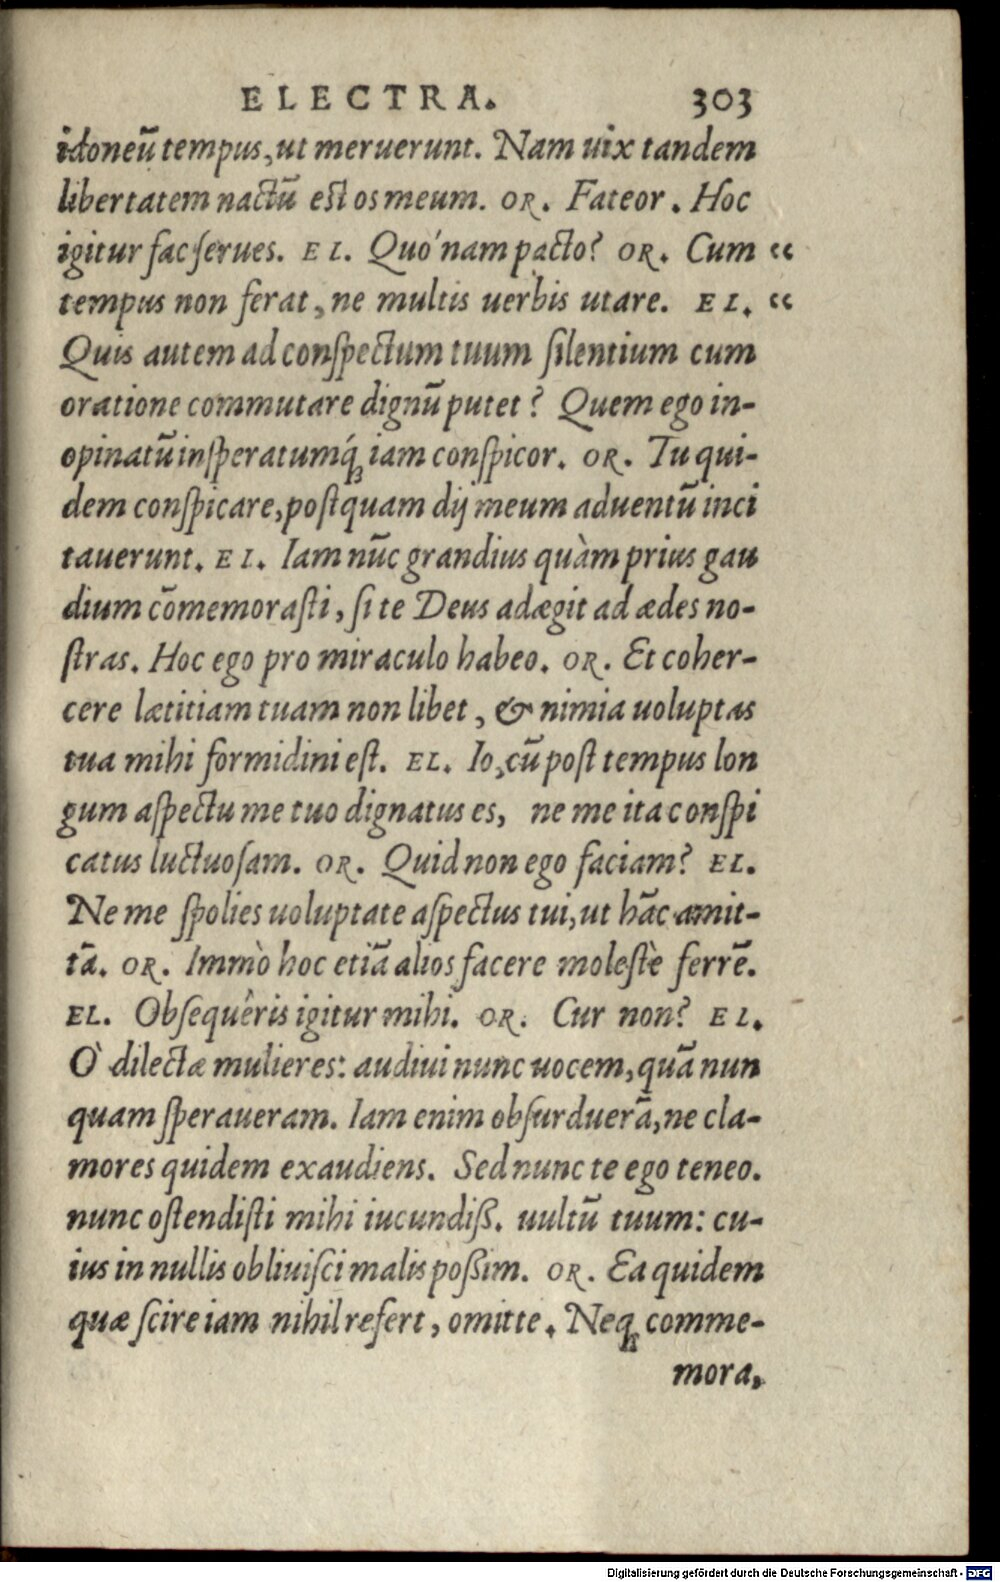 ELECTRA. 303
idoneũ tempus, ut meruerunt. Nam uix tandem
libertatem nactũ est os meum. OR. Fateor. Hoc
igitur fac ſerues. EL. Quó nam pacto? OR. Cum “
tempus non ferat, ne multis uerbis utare. EL. “
Quis autem ad conſpectum tuum ſilentium cum
oratione commutare dignũ putet? Quem ego in-
opinatũ inſperatumq́ꝫ iam conſpicor. OR. Tu qui-
dem conſpicare, poſtquam dij meum aduentũ inci
tauerunt. EL. Iam nũc grandius quàm prius gau
dium cõmemoraſti, ſi te Deus adægit ad ædes no-
ſtras. Hoc ego pro miraculo habeo. OR. Et coher-
cere lætitiam tuam non libet, & nimia uoluptas
tua mihi formidini eſt. EL. Io, cũ poſt tempus lon
gum aſpectu me tuo dignatus es, ne me ita conſpi
catus luctuoſam. OR. Quid non ego faciam? EL.
Ne me ſpolies uoluptate aſpectus tui, ut hãc amit-
tã. OR. Immò hoc etiã alios facere moleſtè ferrẽ.
EL. Obſequêris igitur mihi. OR. Cur non? EL.
Ò dilectæ mulieres: audiui nunc uocem, quã nun
quam ſperaueram. Iam enim obſurduerã, ne cla-
mores quidem exaudiens. Sed nunc te ego teneo.
nunc oſtendiſti mihi iucundiß. uultũ tuum: cu-
ius in nullis obliuiſci malis poßim. OR. Ea quidem
quæ ſcire iam nihil refert, omitte. Neqꝫ comme-
mora,
Digitalisierung gefördert durch die Deutsche Forschungsgemeinschaft - DFG